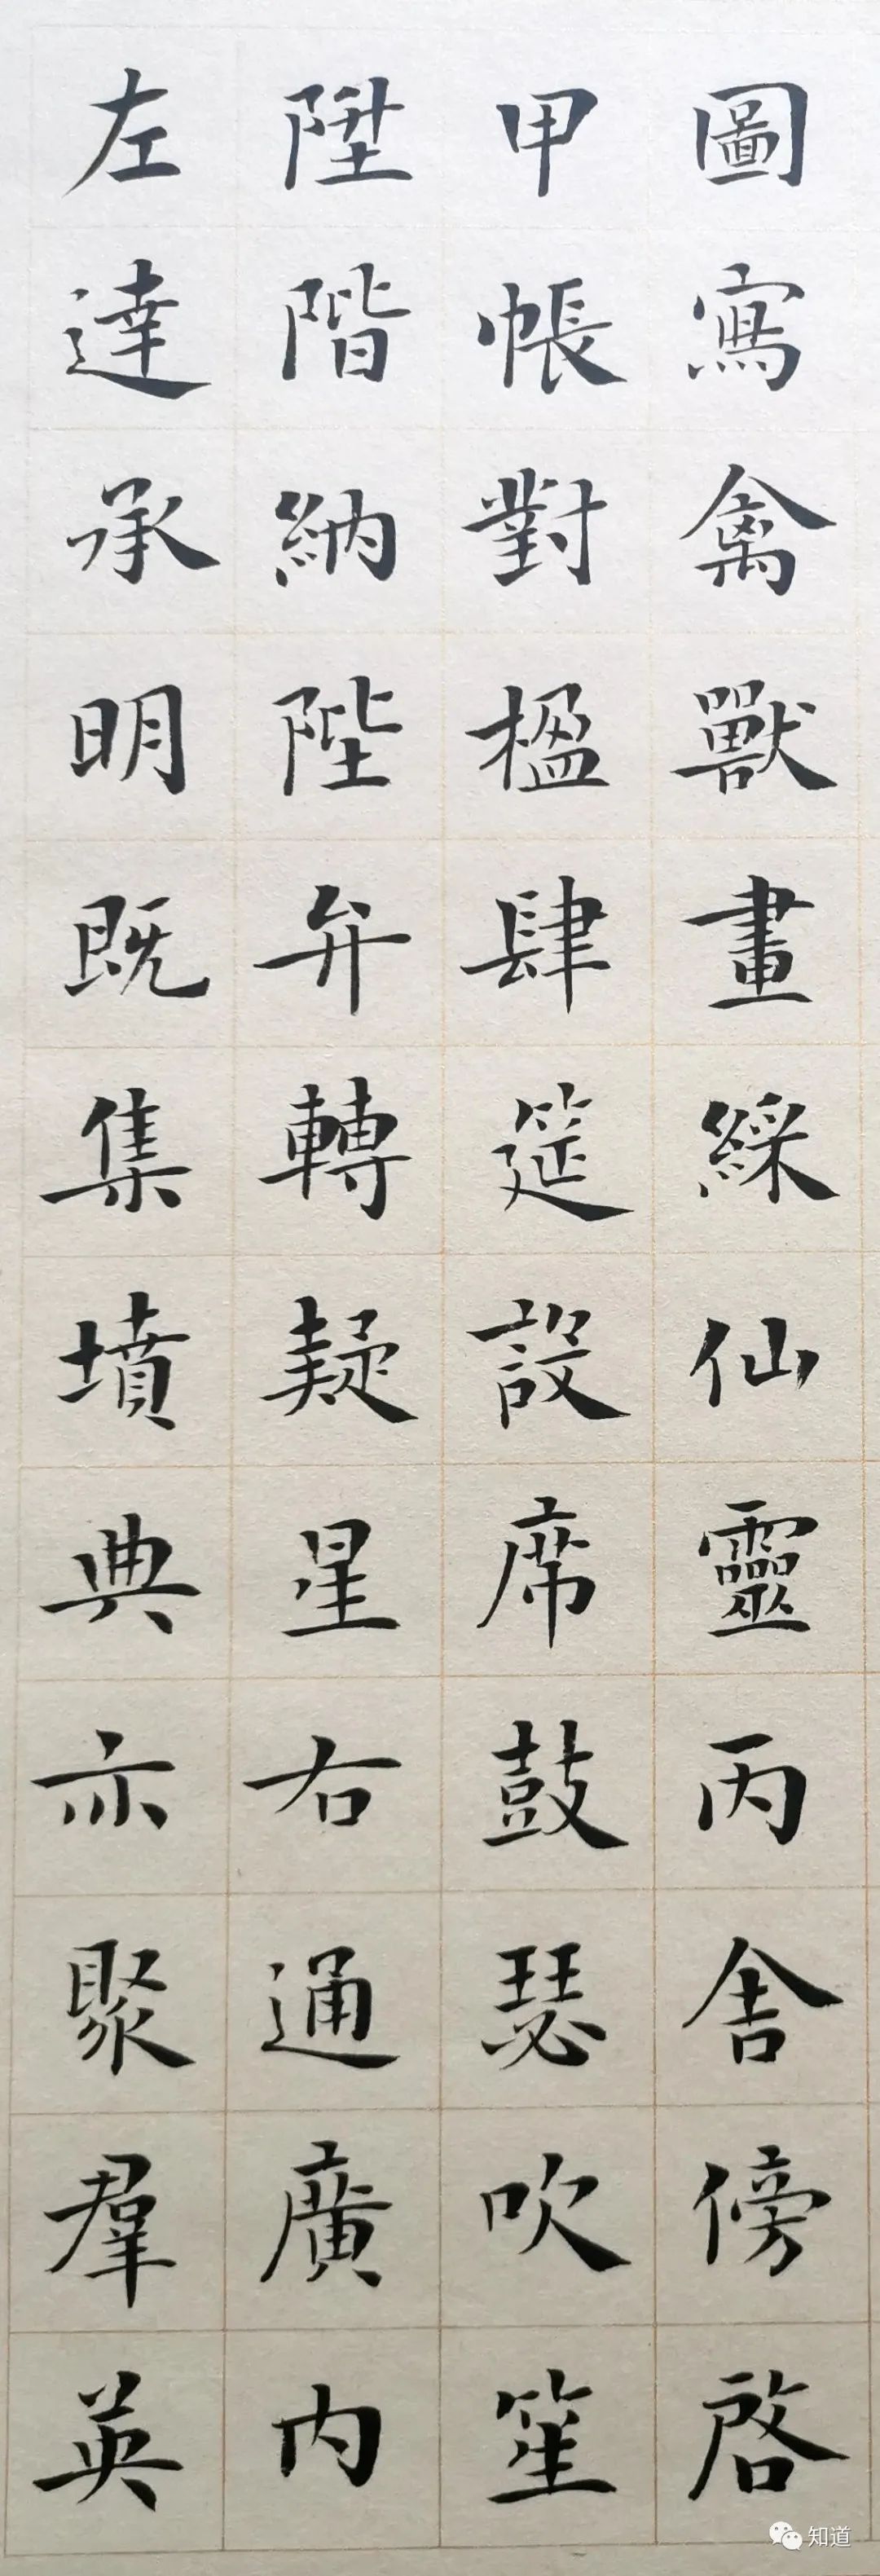 圖寫禽獸畫綵仙靈丙舍傍啓
甲帳對楹肆筵設席鼓瑟吹笙
陞階納陛弁轉疑星右通廣内
左達承明既集墳典亦聚羣英
知道